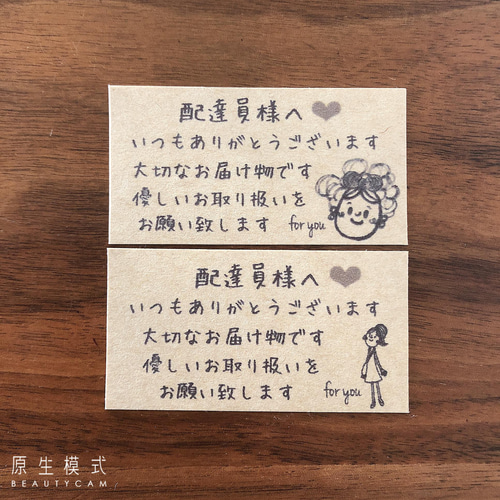 配達員様へ
いつもありがとうございます
大切なお届け物です
優しいお取り扱いを
お願い致します for you
配達員様へ
いつもありがとうございます
大切なお届け物です
優しいお取り扱いを
お願い致します for you
原生模式
BEAUTYCAM